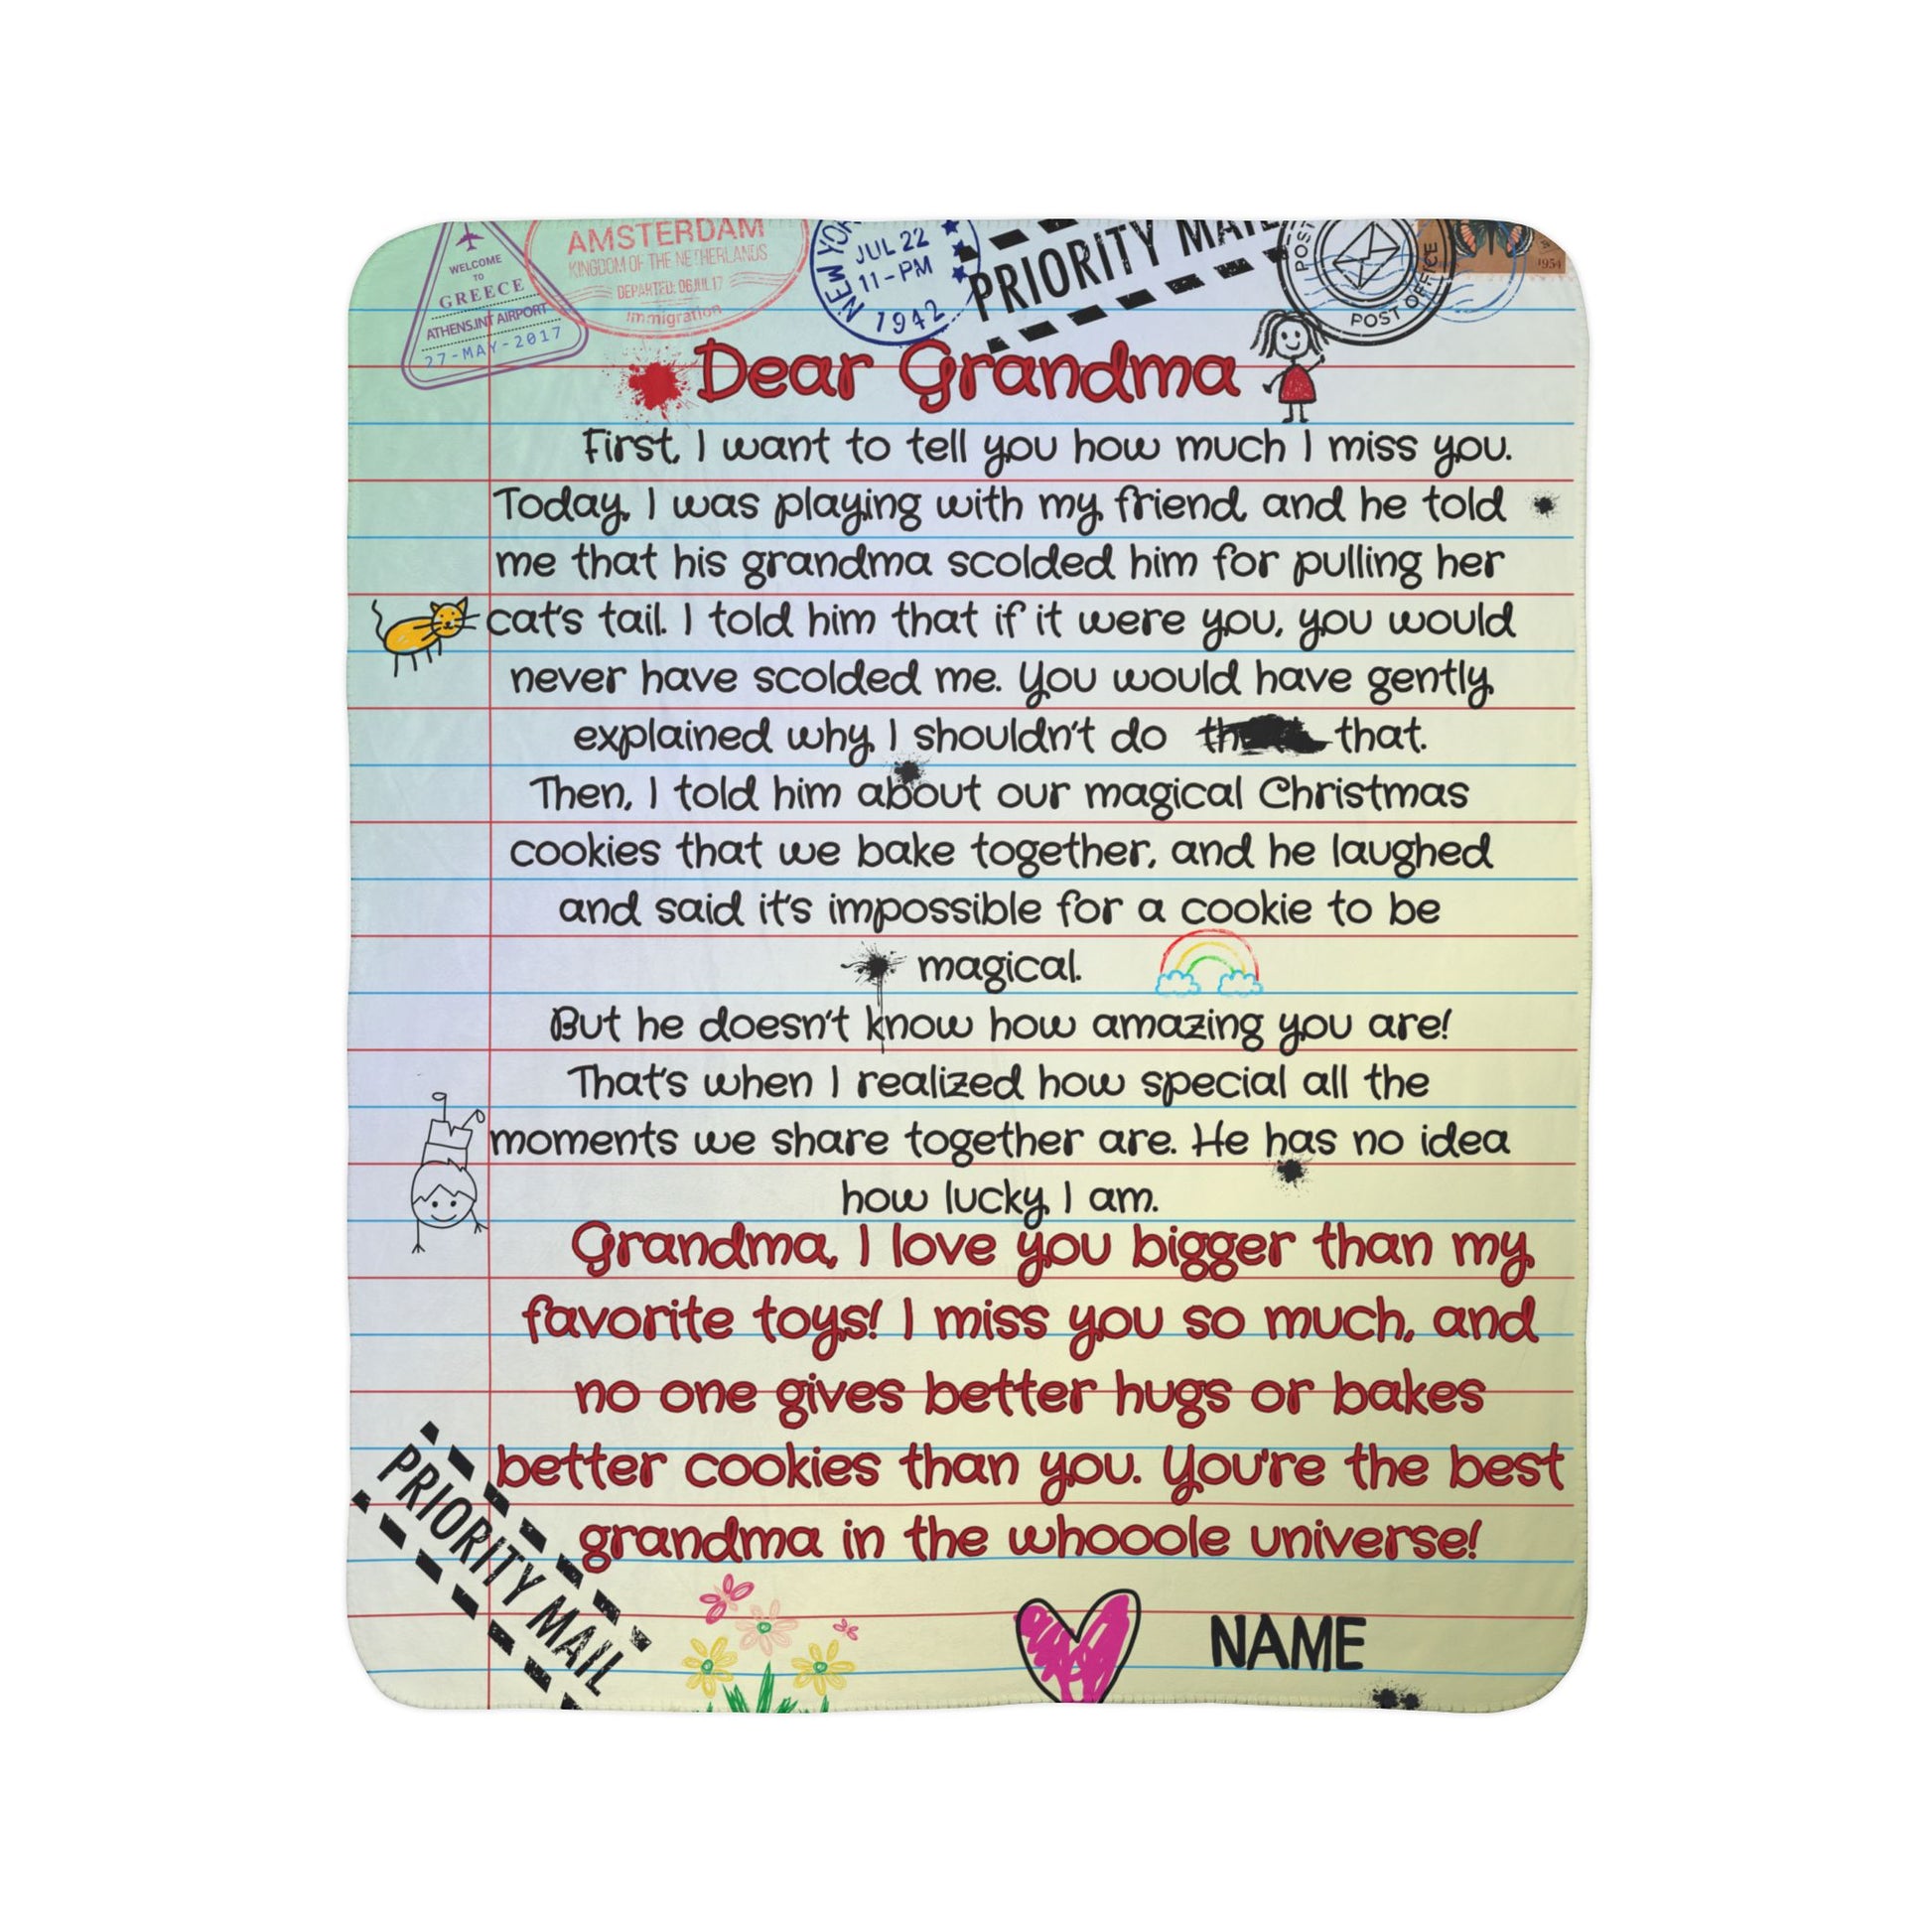 WELCOME
TO
GREECE
ATHENS.INT AIRPORT
27-MAY-2017
AMSTERDAM
KINGDOM OF THE NETHERLANDS
DEPARTED: 06JUL17
immigration
JUL 22
11-PM
1942
PRIORITY MAIL
POST OFFICE
1954
Dear Grandma
First, I want to tell you how much I miss you.
Today, I was playing with my friend, and he told
me that his grandma scolded him for pulling her
cat's tail. I told him that if it were you, you would
never have scolded me. You would have gently
explained why I shouldn't do that.
Then, I told him about our magical Christmas
cookies that we bake together, and he laughed
and said it's impossible for a cookie to be
magical.
But he doesn't know how amazing you are!
That's when I realized how special all the
moments we share together are. He has no idea
how lucky I am.
Grandma, I love you bigger than my
favorite toys! I miss you so much, and
no one gives better hugs or bakes
better cookies than you. You're the best
grandma in the whooole universe!
PRIORITY MAIL
NAME